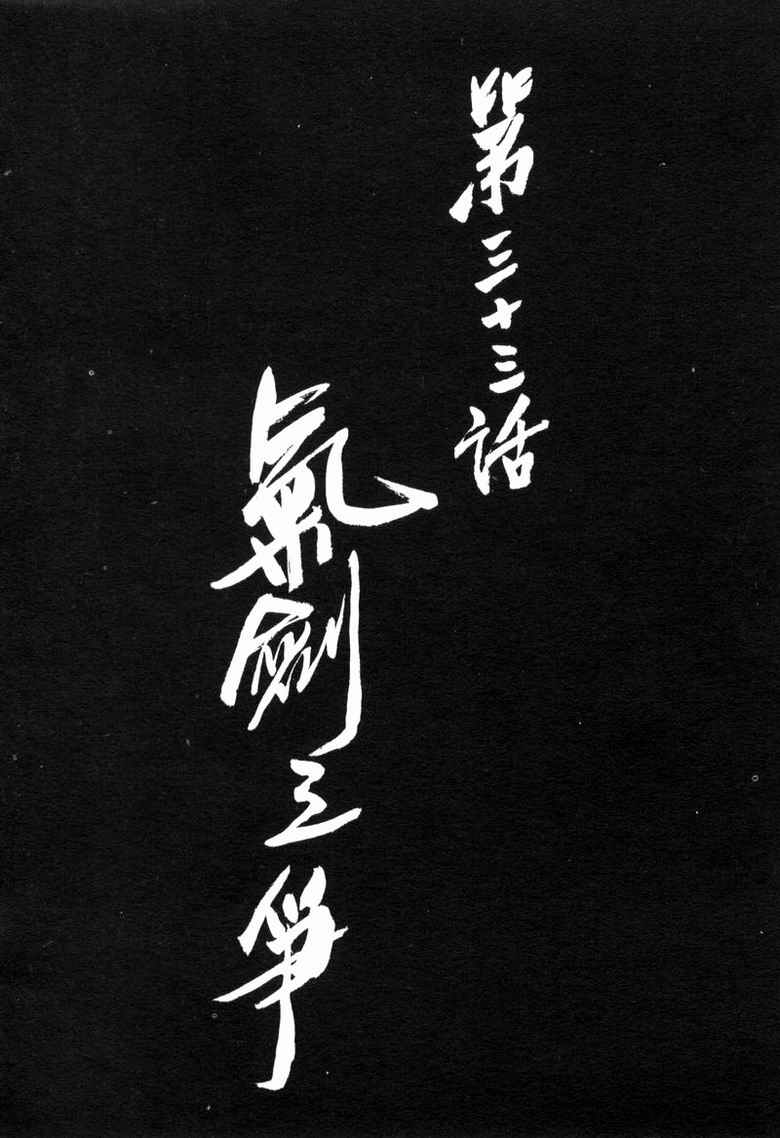 第三十三話
氣劍之爭